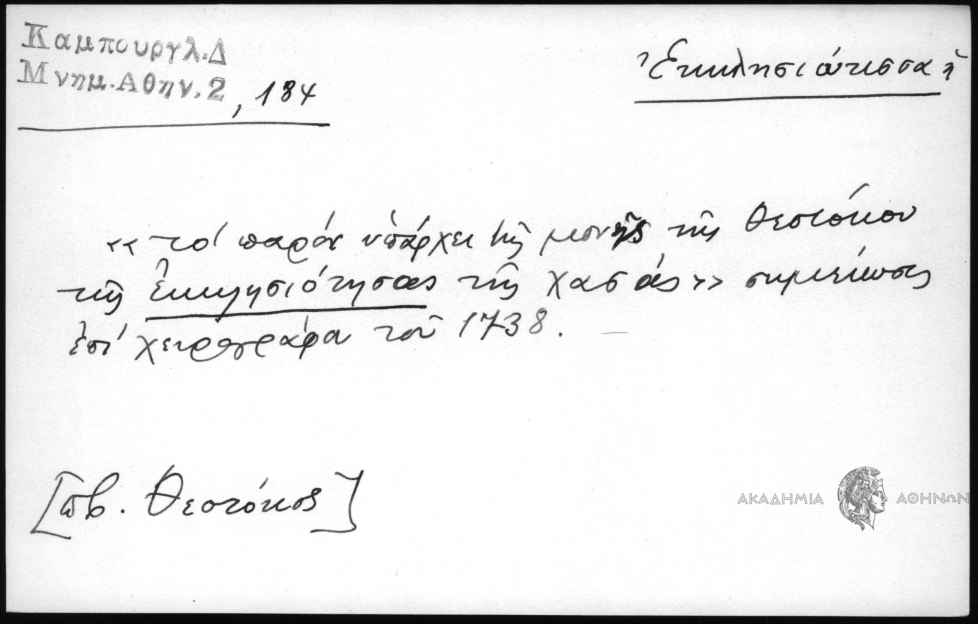 Καμπουργλ.Δ
Μνημ.Αθην.2, 184
Ἐκκλησιώτισσα ἡ
«τὸ παρὸν ὑπάρχει τῆς μονῆς τῆς Θεοτόκου
τῆς Ἐκκλησιότησας τῆς χασιάς» σημείωσις
ἐπὶ χειρογράφου τοῦ 1738.
[πβ. Θεοτόκος]
ΑΚΑΔΗΜΙΑ ΑΘΗΝΩΝ